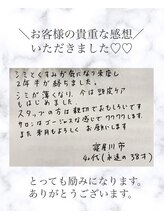 ＼お客様の貴重な感想／
いただきました♡♡
シミとくすみが気になり来店し
2年半が経ちました。
シミが薄くなり、今は野皮ケア
もはじめました。
スタッフの方は親切でおもしろいです
サロンはゴージャスな感じでワクワクします
また来月もよろしくお願いします
寝屋川市
40代(永遠の38才)
とっても励みになります。
ありがとうございます。